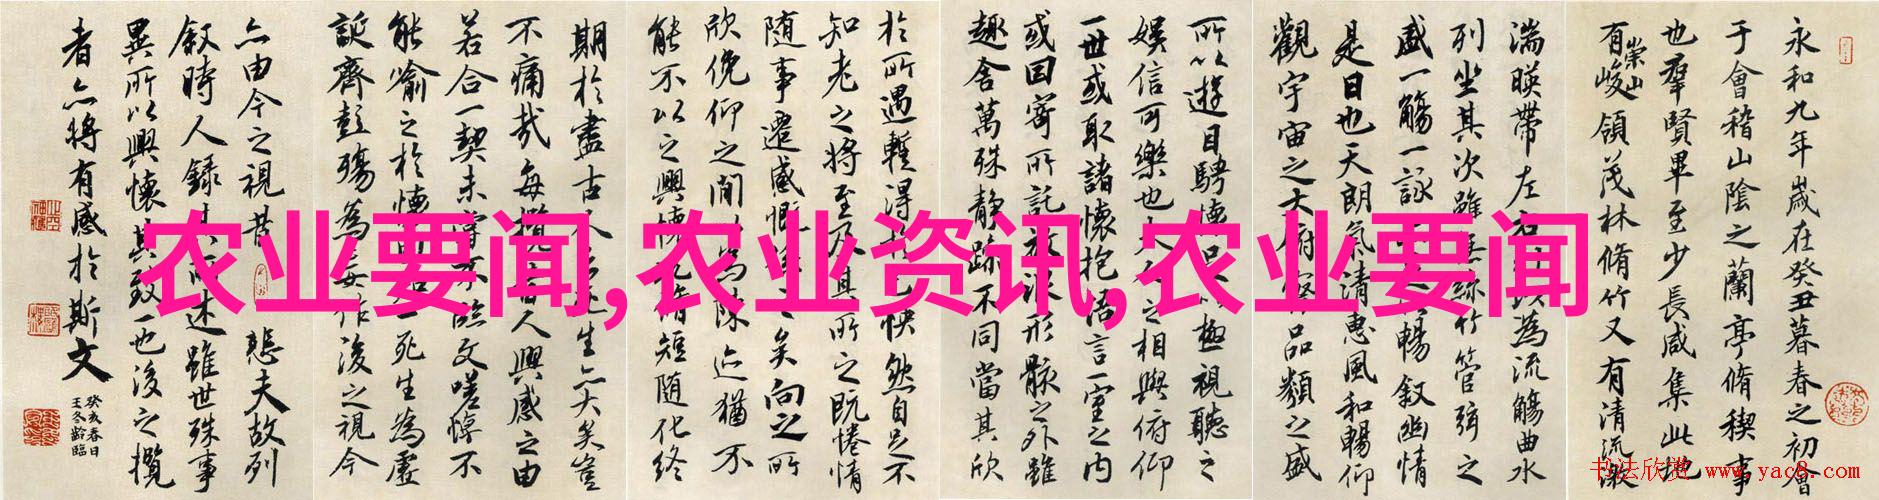 永和九年歲在癸丑暮春之初會
于會稽山陰之蘭亭脩稧事
也羣賢畢至少長咸集此地
有崇山峻領茂林脩竹又有清流激
湍暎帶左右為流觴曲水
列坐其次雖無絲竹管弦之
盛一觴一詠暢敘幽情
是日也天朗氣清惠風和暢仰
觀宇宙之大俯察品類之盛
所以遊目騁懷足以極視聽之
娛信可樂也夫人之相與俯仰
一世或取諸懷抱悟言一室之內
或因寄所託放浪形骸之外雖
趣舍萬殊静躁不同當其欣
於所遇暫得於己怏然自足不
知老之將至及其所之既惓情
随事遷感慨係之矣向之所
欣俛仰之閒以為陳迹猶不
能不以之興懷況脩短随化終
期於盡古人云死生亦大矣豈
不痛哉每攬昔人興感之由
若合一契未嘗不臨文嗟悼不
能喻之於懷固知一死生為虛
誕齊彭殤為妄作後之視今
亦由今之視昔悲夫故列
敘時人錄其所述雖世殊事
異所以興懷其致一也後之攬
者亦將有感於斯文
癸亥春日
王冬齡臨
农业要闻,农业资讯,农业要闻
书法欣赏 www.yac8.com